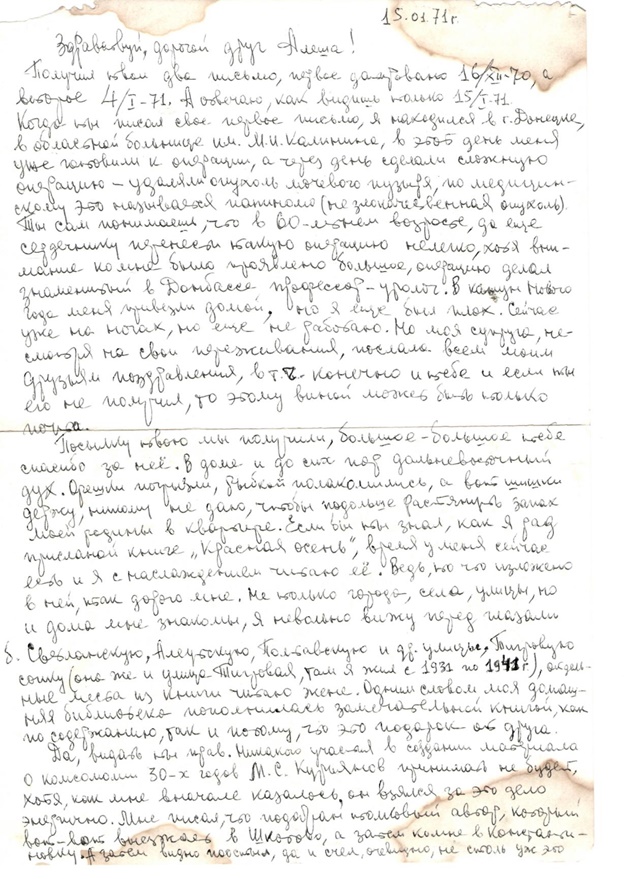 15.01.71г.
Здравствуй, дорогой друг Алеша!
Получил твои два письмо, первое датировано 16/XII-70, а
второе 4/I-71. А отвечаю, как видишь только 15/I-71.
Когда ты писал свое первое письмо, я находился в г. Донецке,
в областной больнице им. М.И. Калинина, в этот день меня
уже готовили к операции, а через день сделали сложную
операцию – удаляли опухоль мочевого пузыря, по медицин-
скому это называется папилома (не злокачественная опухоль).
Ты сам понимаешь, что в 60-летнем возрасте, да еще
сердечнику перенести такую операцию нелегко, хотя вни-
мание ко мне было проявлено большое, операцию делал
знаменитый в Донбассе профессор-уролог. В канун Нового
года меня привезли домой, но я еще был плох. Сейчас
уже на ногах, но еще не работаю. Но моя супруга, не-
смотря на свои переживания, послала всем моим
друзьям поздравления, в т.ч. конечно и тебе и если ты
его не получил, то этому виной может быть только
почта.
Посылку твою мы получили, большое-большое тебе
спасибо за неё. В доме и до сих пор дальневосточный
дух. Орешки погрызли, рыбкой полакомились, а вот шишки
держу, никому не даю, чтобы подольше растянуть запах
моей родины в квартире. Если бы ты знал, как я рад
присланой книге „Красная осень", время у меня сейчас
есть и я с наслаждением читаю её. Ведь, то что изложено
в ней, так дорого мне. Не только города, села, улицы, но
и дома мне знакомы, я невольно вижу перед глазами
б. Светланскую, Алеутскую, Полтавскую и др. улицы, Тигровую
сопку (она же и улица Тигровая, там я жил с 1931 по 1941 г), отдель-
ные места из книги читаю жене. Одним словом моя домаш-
няя библиотека пополнилась замечательной книгой, как
по содержанию, так и потому, что это подарок от друга.
Да, видать ты прав. Никакого участия в создании материала
о комсомолии 30-х годов М.С. Куприянов принимать не будет,
хотя, как мне вначале казалось, он взялся за это дело
энергично. Мне писал, что подобран толковый автор, который
вот-вот выезжает в Шкотово, а затем ко мне в Константи-
новку. А затем видно поостыл, да и счел, очевидно, не столь уж это